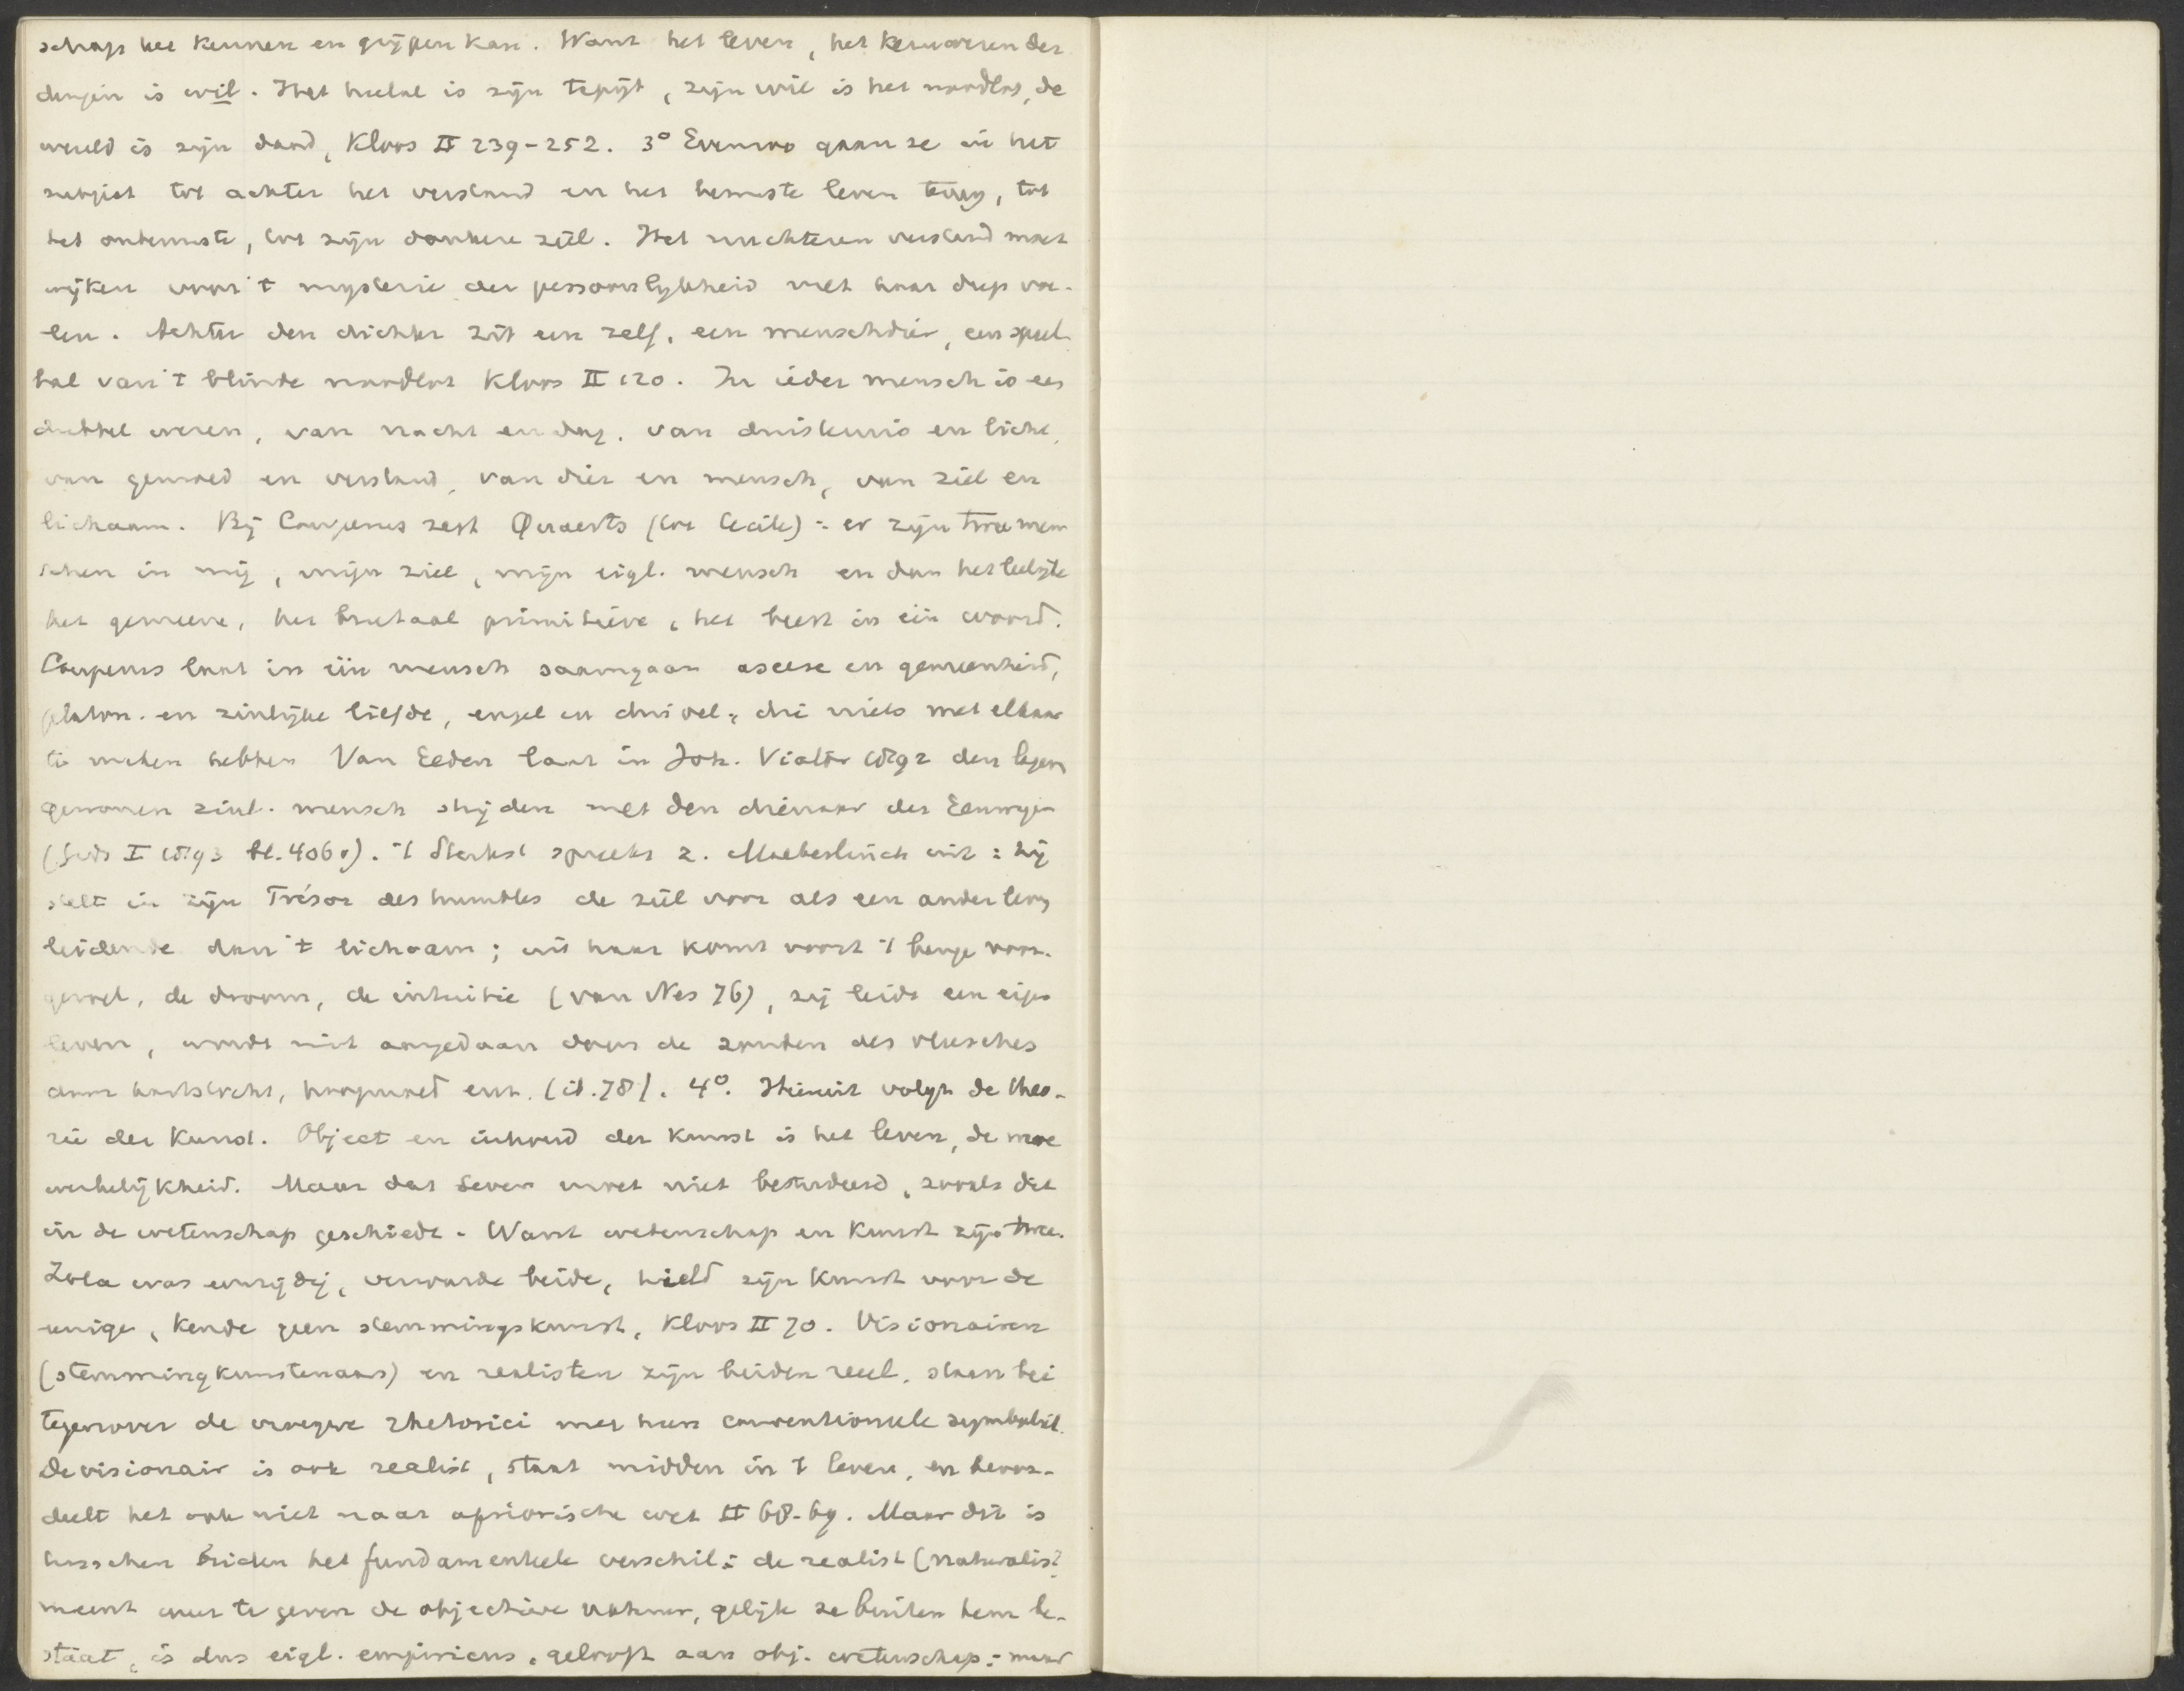 schap het kennen en grijpen kan. Want het leven, het kernwezen der
dingen is wil. Het heelal is zijn tapijt, zijn wil is het noodlot, de
wereld is zijn daad, Kloos II 239-252. 3° Evenzoo gaan ze in het
subject tot achter het verstand en het bewuste leven terug, tot
het onbewuste, tot zijn donkere ziel. Het nuchteren verstand moet
wijken voor 't mysterie der persoonlijkheid met haar diep voe-
len. Achter den dichter zit een zelf, een menschdier, een speel
bal van 't blinde noodlot Kloos II 120. In ieder mensch is een
dubbel wezen, van nacht en dag, van duisternis en licht,
van gemoed en verstand, van dier en mensch, van ziel en
lichaam. Bij Couperus zegt Quaerts (tot Cecile): er zijn twee men
schen in mij, mijn ziel, mijn eigl. mensch en dan het leelijke
het gemeene, het brutaal primitieve, het beest in één woord.
Couperus laat in één mensch saamgaan ascese en gemeenheid,
platon. en zinlijke liefde, engel en duivel, die niets met elkaar
te maken hebben Van Eeden laat in Joh. Viator 1892 den tegen
genomen zinl. mensch strijden met den dienaar der Eeuwige
(Gids I 1893 bl. 406v). 't Sterkst spreekt z. Maeterlinck uit: hij
stelt in zijn Trésor des humbles de ziel voor als een ander leven
leidende dan 't lichaam; uit haar komt voort 't bange voor-
gevoel, de droom, de intuitie (van Nes 76), zij leidt een eigen
leven, wordt niet aangedaan door de zonden des vleesches
door hartstocht, hoogmoed enz. (id. 78). 4°. Hieruit volgt de theo-
rie der Kunst. Object en inhoud der kunst is het leven, de
werkelijkheid. Maar dat leven moet niet bestudeerd, zooals dit
in de wetenschap geschiedt. Want wetenschap en Kunst zijn twee.
Zola was eenzijdig, verwarde beide, hield zijn Kunst voor de
eenige, kende geen stemmingskunst, Kloos II 70. Visionairen
(stemmingkunstenaars) en realisten zijn beiden reeel, staan bei
tegenover de vroegere rhetorici met hun conventioneele symboliek.
De visionair is ook realist, staat midden in 't leven, en beoor-
deelt het ook niet naar apriorische wet II 68-69. Maar dit is
tusschen beiden het fundamenteele verschil: de realist (naturalist)
meent weer te geven de objectieve natuur, gelijk ze buiten hem be-
staat, is dus eigl. empiricus, gelooft aan obj. wetenschap; maar